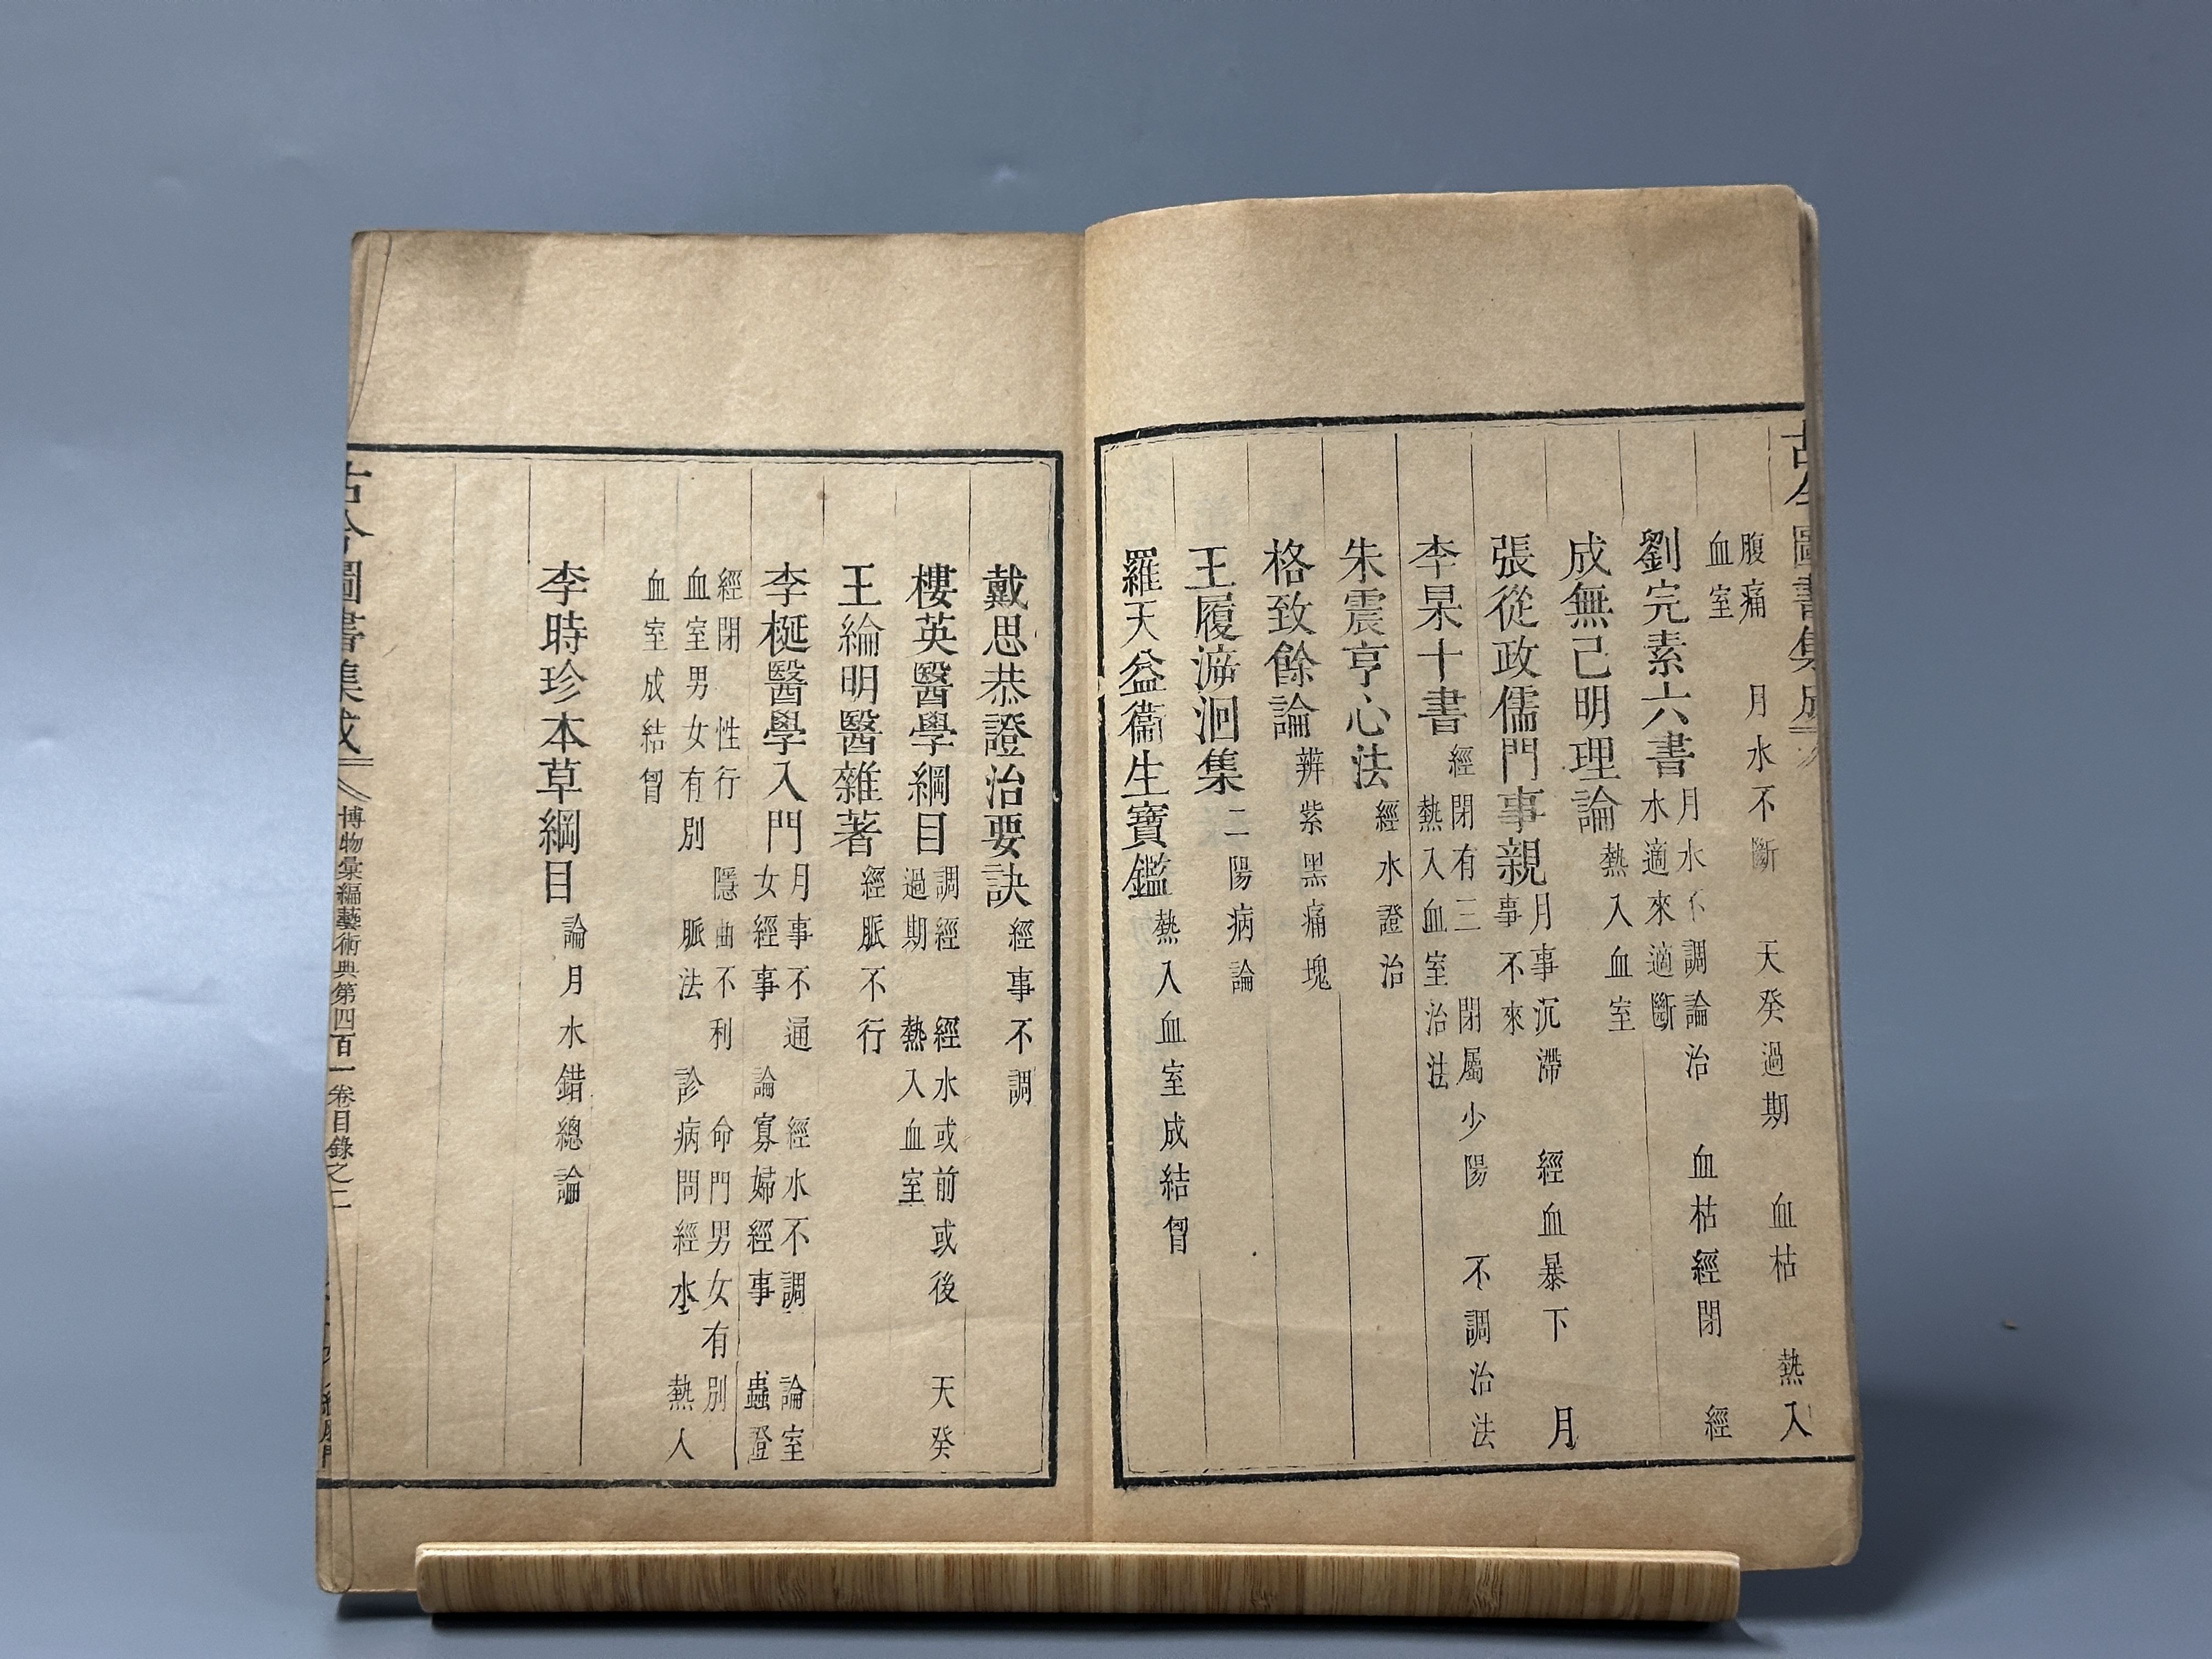 古今圖書集成
腹痛　月水不斷　天癸過期　血枯　熱入
血室
劉完素六書
月水不調論治　血枯經閉　經
水適來適斷
成無己明理論
熱入血室
張從政儒門事親
月事沉滯　經血暴下　月
事不來
李杲十書
經閉有三　閉屬少陽　不調治法
熱入血室治法
朱震亨心法
經水證治
格致餘論
辨紫黑痛塊
王履泝洄集
二陽病論
羅天益衞生寶鑑
熱入血室成結胷
戴思恭證治要訣
經事不調
樓英醫學綱目
調經　經水或前或後　天癸
過期　熱入血室
王綸明醫雜著
經脈不行
李梴醫學入門
月事不通　經水不調　論室
女經事　論寡婦經事　蟲證
經閉　性行　隱曲不利　命門男女有別
血室男女有別　脈法　診病問經水　熱入
血室成結胷
李時珍本草綱目
論月水錯總論
古今圖書集成
博物彙編藝術典第四百一卷目錄之二